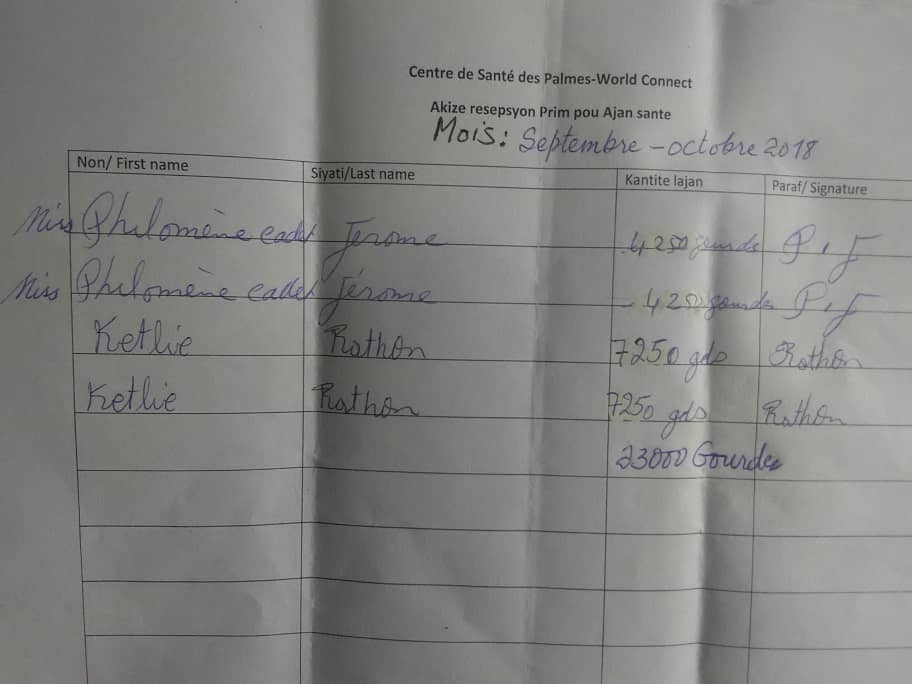 Centre de Santé des Palmes-World Connect
Akize resepsyon Prim pou Ajan sante
Mois: Septembre - octobre 2018
Non/ First name Siyati/Last name Kantite lajan Paraf/ Signature
Miss Philomène cadet Jérome 4,250 gourdes P.J
Miss Philomène cadet Jérome - 4250 gourdes P.J
Ketlie Rathon 7250 gds Rathon
Ketlie Rathon 7250 gds Rathon
23000 Gourdes